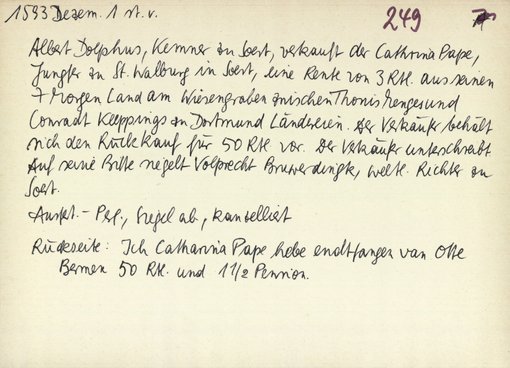 1593 Dezem. 1 st. v.
249
Albert Dolphus, Kemner zu Soest, verkauft der Cathrina Pape,
Jungfer zu St. Walburg in Soest, eine Rente von 3 Rtl. aus seinen
7 Morgen Land am Wiesengraben zwischen Thonis Menges und
Conradt Kleppings zu Dortmund Ländereien. Der Verkäufer behält
sich den Rückkauf für 50 Rtl vor. Der Verkäufer unterschreibt.
Auf seine Bitte siegelt Volprecht Bruwerdingk, weltl. Richter zu
Soest.
Ausf. - Perg., Siegel ab, kanzelliert
Rückseite: Ich Catharina Pape hebe endtfangen van Otte
Bernen 50 Rtl. und 1 1/2 Pension.